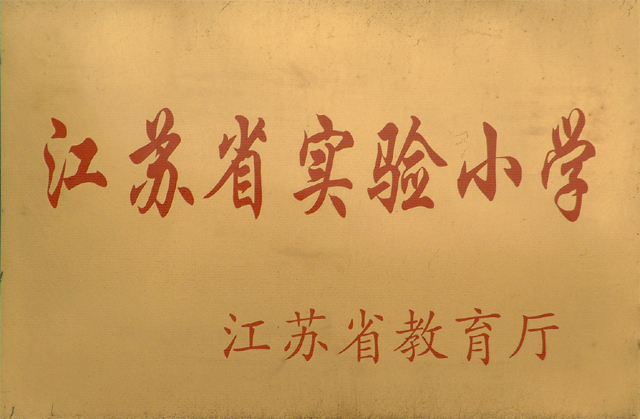 江苏省实验小学
江苏省教育厅